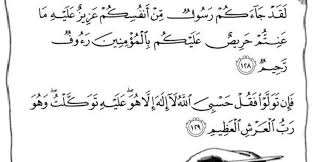 لَقَدْ جَآءَكُمْ رَسُولٌ مِّنْ أَنفُسِكُمْ عَزِيزٌ عَلَيْهِ مَا
عَنِتُّمْ حَرِيصٌ عَلَيْكُم بِالْمُؤْمِنِينَ رَءُوفٌ
رَّحِيمٌ ١٢٨
فَإِن تَوَلَّوْا فَقُلْ حَسْبِيَ اللَّهُ لَآ إِلَٰهَ إِلَّا هُوَ عَلَيْهِ تَوَكَّلْتُ وَهُوَ
رَبُّ الْعَرْشِ الْعَظِيمِ ١٢٩